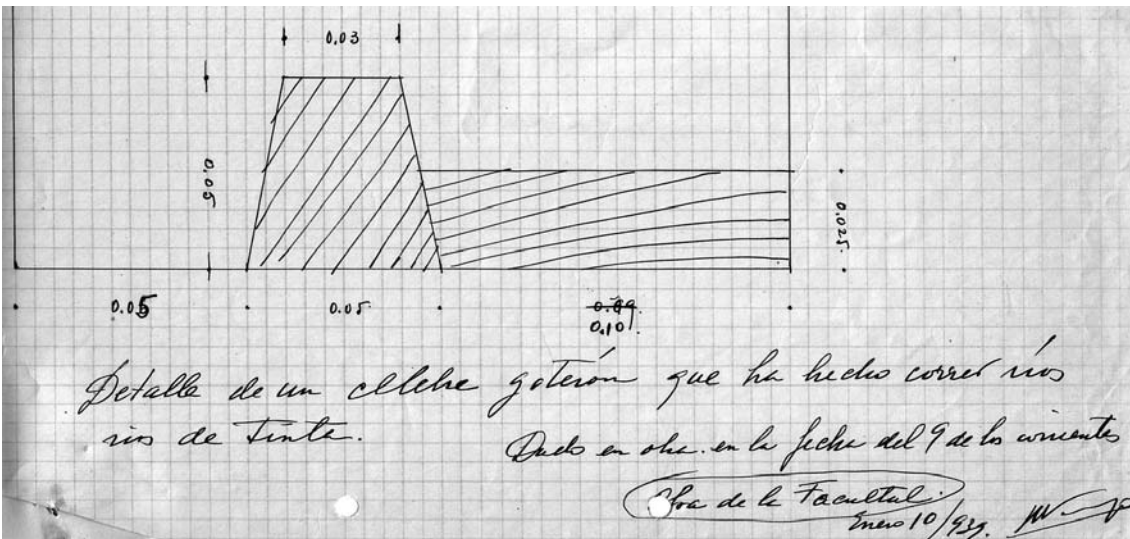 0.03
0.05
0.025.
0.05
0.05.
0.89.
0.10
Detalle de un célebre goterón que ha hecho correr ríos
ríos de Tinta.
Dado en obra. en la fecha del 9 de los corrientes
Obra de la Facultad.
Enero 10/939.